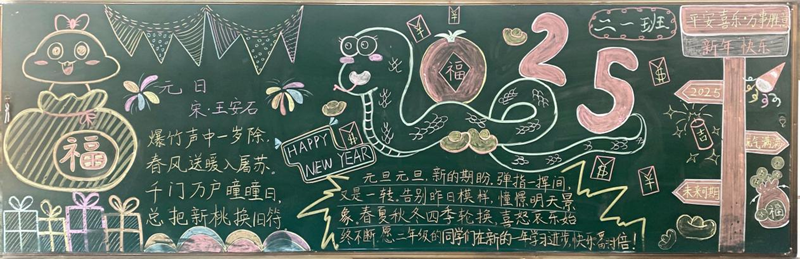 元日
宋:王安石
爆竹声中一岁除.
春风送暖入屠苏.
千门万户曈曈日,
总把新桃换旧符
福
福
HAPPY
NEW YEAR
2 2 5
元旦元旦,新的期盼,弹指一挥间,
又是一转,告别昨日模样,憧憬明天景
象,春夏秋冬四季轮换,喜怒哀乐始
终不断.愿二年级的同学们在新的一年学习进步,快乐
二一班
平安喜乐·万事胜意
新年快乐
2025
未来可期
吉
福